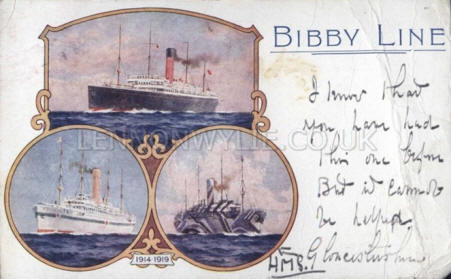 BIBBY LINE
I know that
you have had
this one before
But it cannot
be helped
HMS. Gloucestershire
1914-1919
LENNONWYLIE.CO.UK